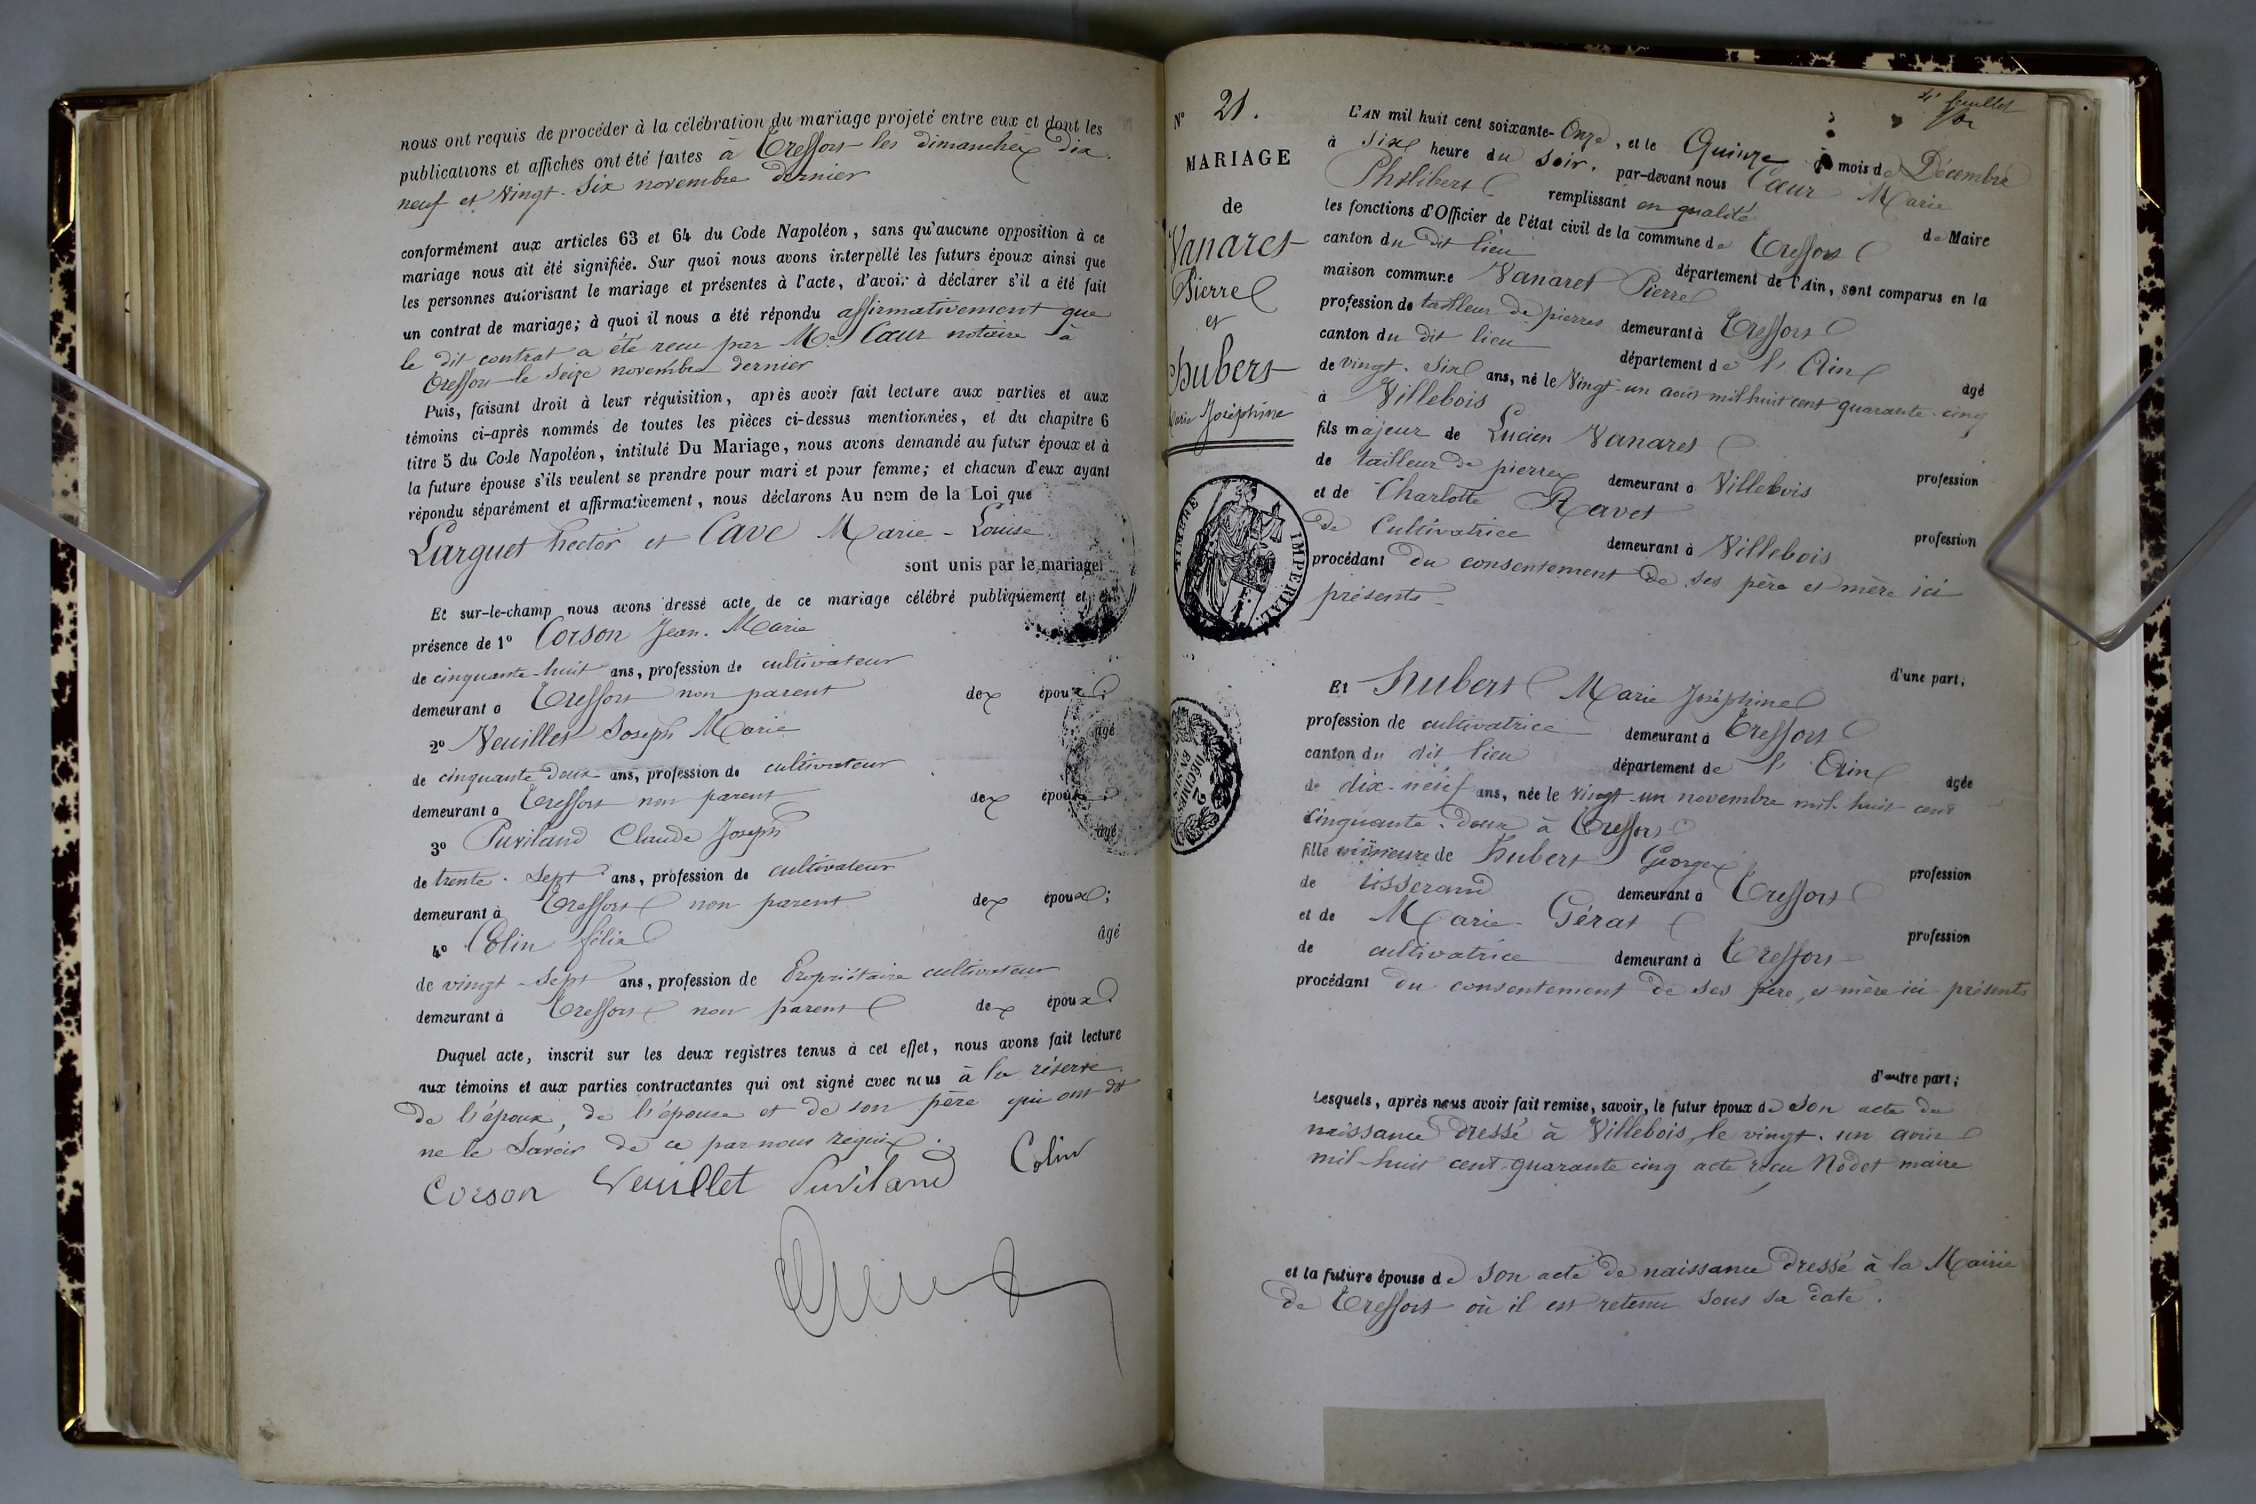 nous ont requis de procéder à la célébration du mariage projeté entre eux et dont les
publications et affiches ont été faites à Treffort les dimanches dix
neuf et Vingt-Six novembre dernier
conformément aux articles 63 et 64 du Code Napoléon, sans qu'aucune opposition à ce
mariage nous ait été signifiée. Sur quoi nous avons interpellé les futurs époux ainsi que
les personnes autorisant le mariage et présentes à l'acte, d'avoir à déclarer s'il a été fait
un contrat de mariage; à quoi il nous a été répondu affirmativement que
le dit contrat a été recu par Me Cœur notaire à
Treffort le Seize novembre dernier
Puis, faisant droit à leur réquisition, après avoir fait lecture aux parties et aux
témoins ci-après nommés de toutes les pièces ci-dessus mentionnées, et du chapitre 6
titre 5 du Code Napoléon, intitulé Du Mariage, nous avons demandé au futur époux et à
la future épouse s'ils veulent se prendre pour mari et pour femme; et chacun d'eux ayant
répondu séparément et affirmativement, nous déclarons Au nom de la Loi que
Larguet hector et Cave Marie-Louise
sont unis par le mariage
Et sur-le-champ nous avons dressé acte de ce mariage célébré publiquement et
présence de 1º Corson Jean-Marie
de cinquante-huit ans, profession de cultivateur
demeurant à Treffort non parent des époux;
2º Veuillet Joseph Marie âgé
de cinquante deux ans, profession de cultivateur
demeurant à Treffort non parent des époux;
3º Puviland Claude Joseph âgé
de trente-Sept ans, profession de cultivateur
demeurant à Treffort non parent des époux;
4º Colin félix âgé
de vingt-Sept ans, profession de Propriétaire cultivateur
demeurant à Treffort non parent des époux.
Duquel acte, inscrit sur les deux registres tenus à cet effet, nous avons fait lecture
aux témoins et aux parties contractantes qui ont signé avec nous à la réserve
de l'époux, de l'épouse et de son père qui ont dit
ne le Savoir de ce par nous requis.
Corson Veuillet Puviland Colin
feuillet
Nº 21.
MARIAGE
de
Vanaret
Pierre
et
hubert
Marie Joséphine
TIMBRE IMPÉRIAL
L'AN mil huit cent soixante-Onze, et le Quinze mois de Décembre
à Six heure du Soir, par-devant nous Cœur Marie
Philibert remplissant en qualité de Maire
les fonctions d'Officier de l'état civil de la commune de Treffort
canton du dit lieu département de l'Ain, sont comparus en la
maison commune Vanaret Pierre
profession de tailleur de pierres demeurant à Treffort
canton du dit lieu département de l'Ain âgé
de vingt-Six ans, né le Vingt-un août mil huit cent quarante-cinq
à Villebois
fils majeur de Lucien Vanaret profession
de tailleur de pierres demeurant à Villebois
et de Charlotte Ravet profession
de Cultivatrice demeurant à Villebois
procédant du consentement de ses père et mère ici
présents
d'une part;
Et hubert Marie Joséphine
profession de cultivatrice demeurant à Treffort
canton du dit lieu département de l'Ain âgée
de dix-neuf ans, née le Vingt-un novembre mil-huit cent
Cinquante-deux à Treffort
fille mineure de hubert George profession
de tisserand demeurant à Treffort
et de Marie Gérat profession
de cultivatrice demeurant à Treffort
procédant du consentement de ses père et mère ici présents
d'autre part;
Lesquels, après nous avoir fait remise, savoir, le futur époux de Son acte de
naissance dressé à Villebois, le vingt-un août
mil-huit cent-quarante cinq acte reçu Nodet maire
et la future épouse de Son acte de naissance dressé à la Mairie
de Treffort où il est retenu sous sa date.